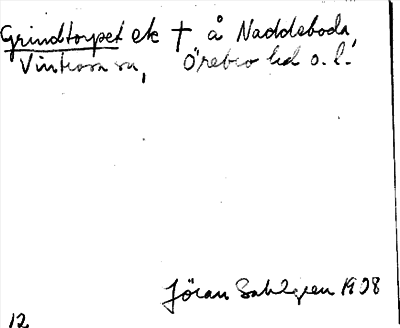 Grindtorpet ek † å Naddeboda,
Vintrosa sn, Örebro hd o. l.
Jöran Sahlgren 1928
12